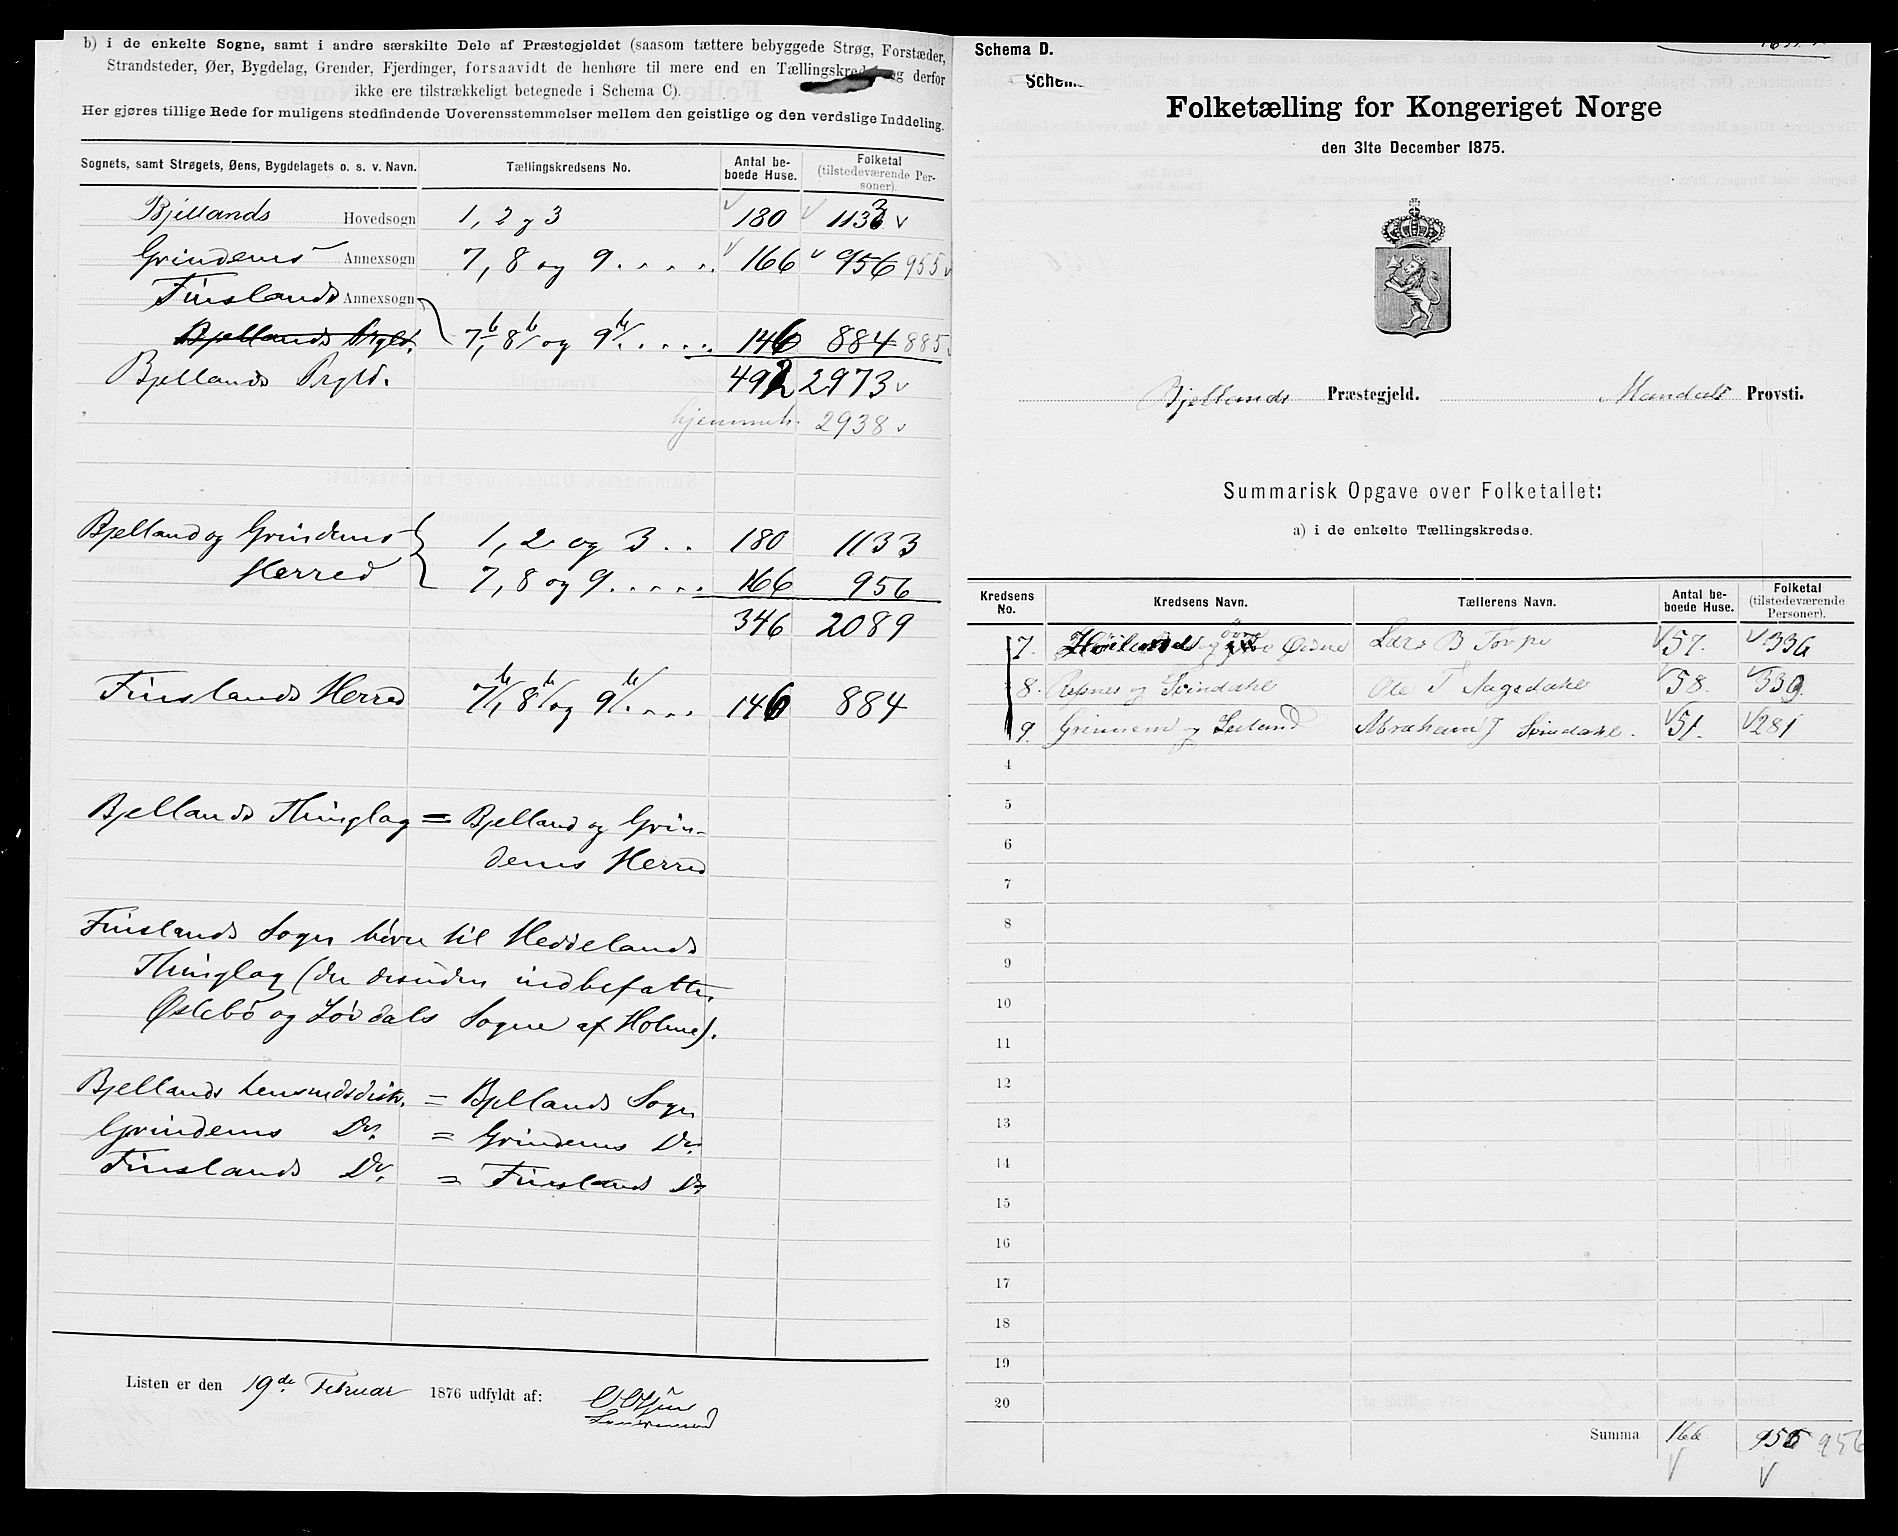 b) i de enkelte Sogne, samt i andre særskilte Dele af Præstegjeldet (saasom tættere bebyggede Strøg, Forstæder,
Strandsteder, Øer, Bygdelag, Grender, Fjerdinger, forsaavidt de henhøre til mere end en Tællingskreds og derfor
ikke ere tilstrækkeligt betegnede i Schema C).
Her gjøres tillige Rede for muligens stedfindende Uoverensstemmelser mellem den geistlige og den verdslige Inddeling.
Sognets, samt Strøgets, Øens, Bygdelagets o. s. v. Navn. Tællingskredsens No. Antal beboede Huse. Folketal (tilstedeværende Personer).
Bjellands Hovedsogn 1, 2 og 3 180 1133
Grindems Annexsogn 7, 8 og 9 . . . . 166 956 955
Finslands Annexsogn
Bjellands Prgld. 7b, 8b og 9b . . . . 146 884 885
Bjellands Prgld. 492 2973
hjemmeh. 2938
Bjelland og Grindems 1, 2 og 3 . . 180 1133
Herred 7, 8 og 9 . . . . . 166 956
346 2089
Finslands Herred 7b, 8b og 9b . . . . 146 884
Bjellands Thinglag = Bjelland og Grin-
dems Herred
Finslands Sogn hører til Heddelands
Thinglag (der desuden indbefatter
Øslebö og Løvdals Sogne af Holme).
Bjellands Lensmdsdistr. = Bjellands Sogn
Grindems Do. = Grindems Do.
Finslands Do. = Finslands Do.
Listen er den 19de Februar 1876 udfyldt af:
Lensmand
Schema D.
Schema
Folketælling for Kongeriget Norge
den 31te December 1875.
Bjellands Præstegjeld. Mandals Provsti.
Summarisk Opgave over Folketallet:
a) i de enkelte Tællingskredse.
Kredsens No. Kredsens Navn. Tællerens Navn. Antal beboede Huse. Folketal (tilstedeværende Personer).
7. øvre Lars B Torpe 57. 336
8. Refsnes og Svindahl Ole T Aagedahl 58. 339
9. Grinnem og Leland Abraham T Svindahl. 51. 281
4
5
6
7
8
9
10
11
12
13
14
15
16
17
18
19
20
Summa 166 956 956